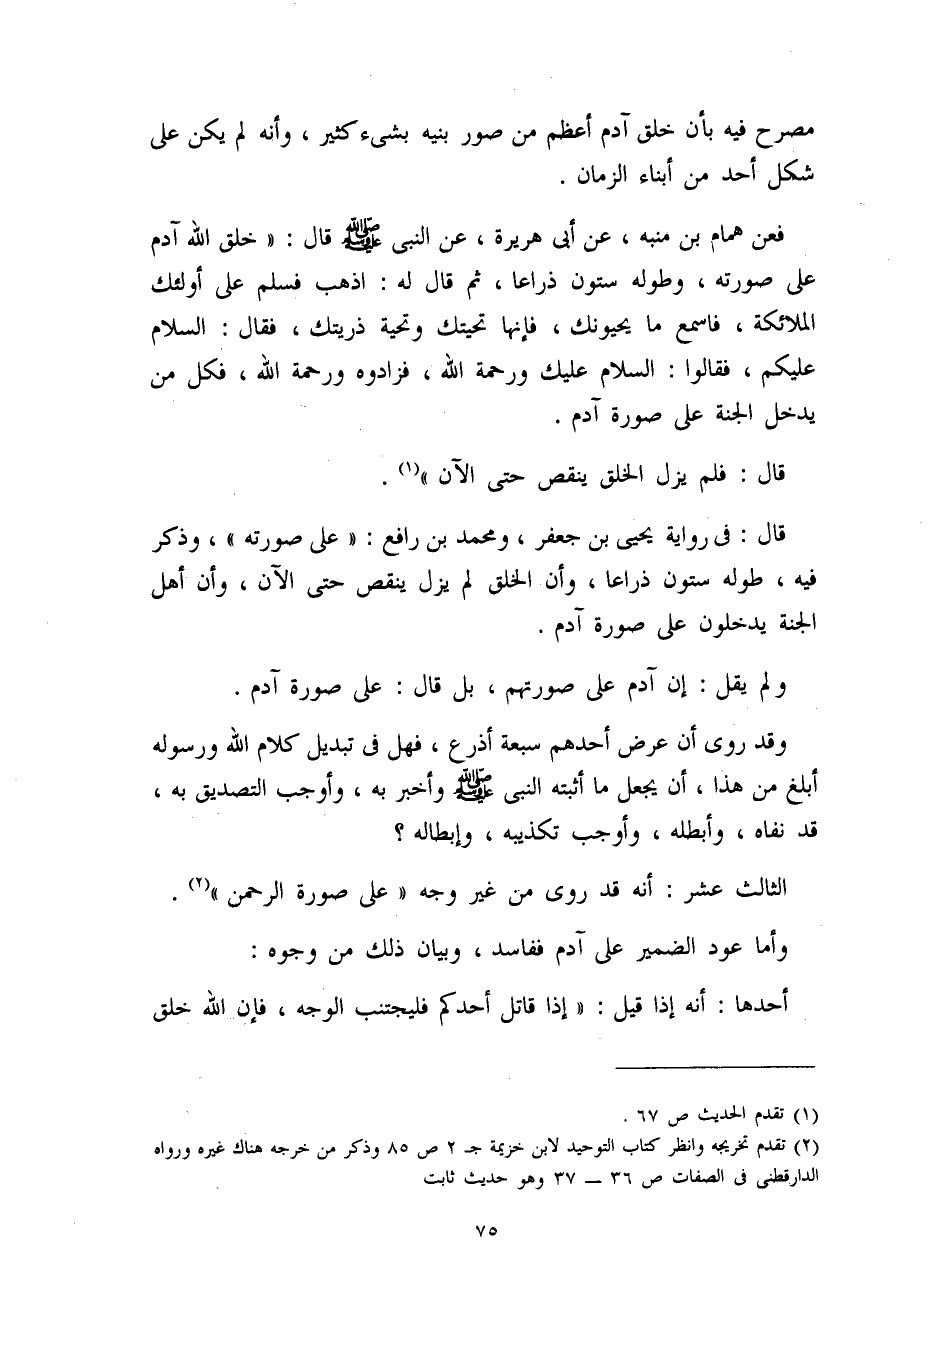 مصرح فيه بأن خلق آدم أعظم من صور بنيه بشىء كثير ، وأنه لم يكن على
شكل أحد من أبناء الزمان .
فعن همام بن منبه ، عن أبى هريرة ، عن النبى ﷺ قال : « خلق الله آدم
على صورته ، وطوله ستون ذراعا ، ثم قال له : اذهب فسلم على أولئك
الملائكة ، فاسمع ما يحيونك ، فإنها تحيتك وتحية ذريتك ، فقال : السلام
عليكم ، فقالوا : السلام عليك ورحمة الله ، فزادوه ورحمة الله ، فكل من
يدخل الجنة على صورة آدم .
قال : فلم يزل الخلق ينقص حتى الآن »(١) .
قال : فى رواية يحيى بن جعفر ، ومحمد بن رافع : « على صورته » ، وذكر
فيه ، طوله ستون ذراعا ، وأن الخلق لم يزل ينقص حتى الآن ، وأن أهل
الجنة يدخلون على صورة آدم .
ولم يقل : إن آدم على صورتهم ، بل قال : على صورة آدم .
وقد روى أن عرض أحدهم سبعة أذرع ، فهل فى تبديل كلام الله ورسوله
أبلغ من هذا ، أن يجعل ما أثبته النبى ﷺ وأخبر به ، وأوجب التصديق به ،
قد نفاه ، وأبطله ، وأوجب تكذيبه ، وإبطاله ؟
الثالث عشر : أنه قد روى من غير وجه « على صورة الرحمن »(٢) .
وأما عود الضمير على آدم ففاسد ، وبيان ذلك من وجوه :
أحدها : أنه إذا قيل : « إذا قاتل أحدكم فليجتنب الوجه ، فإن الله خلق
(١) تقدم الحديث ص ٦٧ .
(٢) تقدم تخريجه وانظر كتاب التوحيد لابن خزيمة جـ ٢ ص ٨٥ وذكر من خرجه هناك غيره ورواه
الدارقطنى فى الصفات ص ٣٦ ــ ٣٧ وهو حديث ثابت
٧٥